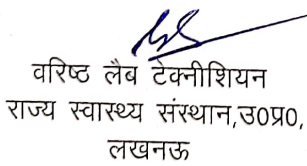 वरिष्ठ लैब टेक्नीशियन
राज्य स्वास्थ्य संस्थान,उ०प्र०,
लखनऊ